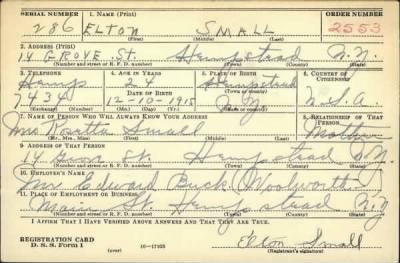 SERIAL NUMBER 1. NAME (Print) ORDER NUMBER
286 ELTON SMALL 2553
(First) (Middle) (Last)
2. ADDRESS (Print)
14 GROVE St. Hempstead N.Y.
(Number and street or R. F. D. number) (Town) (County) (State)
3. TELEPHONE 4. AGE IN YEARS 5. PLACE OF BIRTH 6. COUNTRY OF CITIZENSHIP
Hemp 24 Hempstead
DATE OF BIRTH (Town or county)
7434 12-10-1915 N.Y. U.S.A.
(Exchange) (Number) (Mo.) (Day) (Yr.) (State or country)
7. NAME OF PERSON WHO WILL ALWAYS KNOW YOUR ADDRESS 8. RELATIONSHIP OF THAT PERSON
Mrs Small Mother
(Mr., Mrs., Miss) (First) (Middle) (Last)
9. ADDRESS OF THAT PERSON
14 Grove St. Hempstead N.Y.
(Number and street or R. F. D. number) (Town) (County) (State)
10. EMPLOYER'S NAME
Mr Edward Buck (Woolworth)
11. PLACE OF EMPLOYMENT OR BUSINESS
Main St. Hempstead N.Y.
(Number and street or R. F. D. number) (Town) (County) (State)
I AFFIRM THAT I HAVE VERIFIED ABOVE ANSWERS AND THAT THEY ARE TRUE.
REGISTRATION CARD
D. S. S. Form 1 (over) 16-17105 Elton Small
(Registrant's signature)